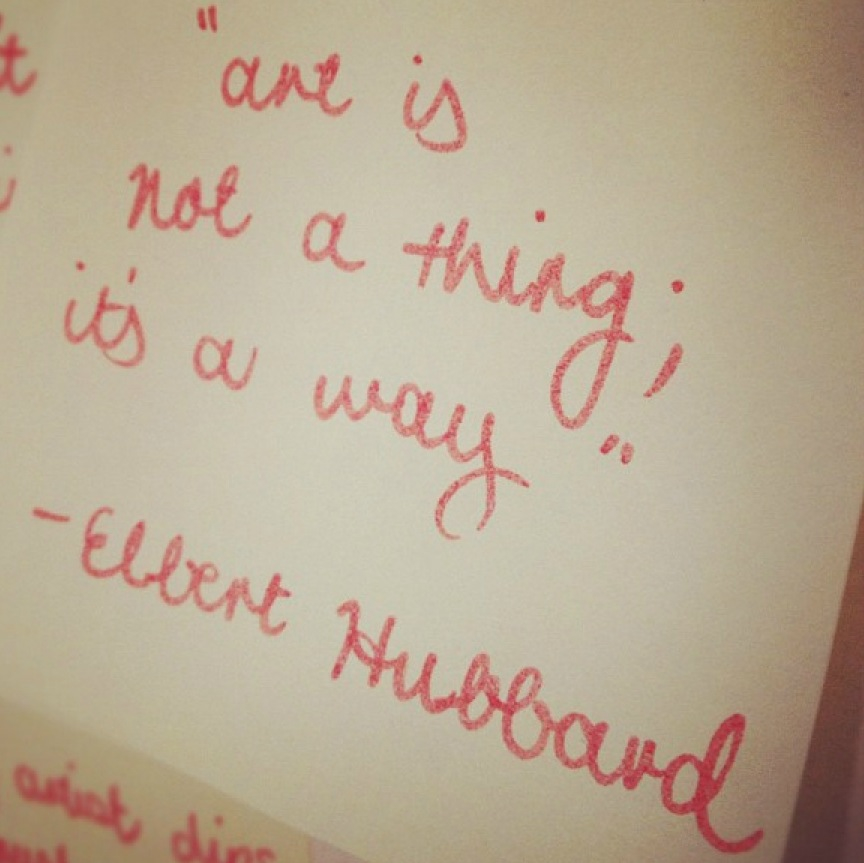 "art is
not a thing;
it's a way"
-Elbert Hubbard
artist dips